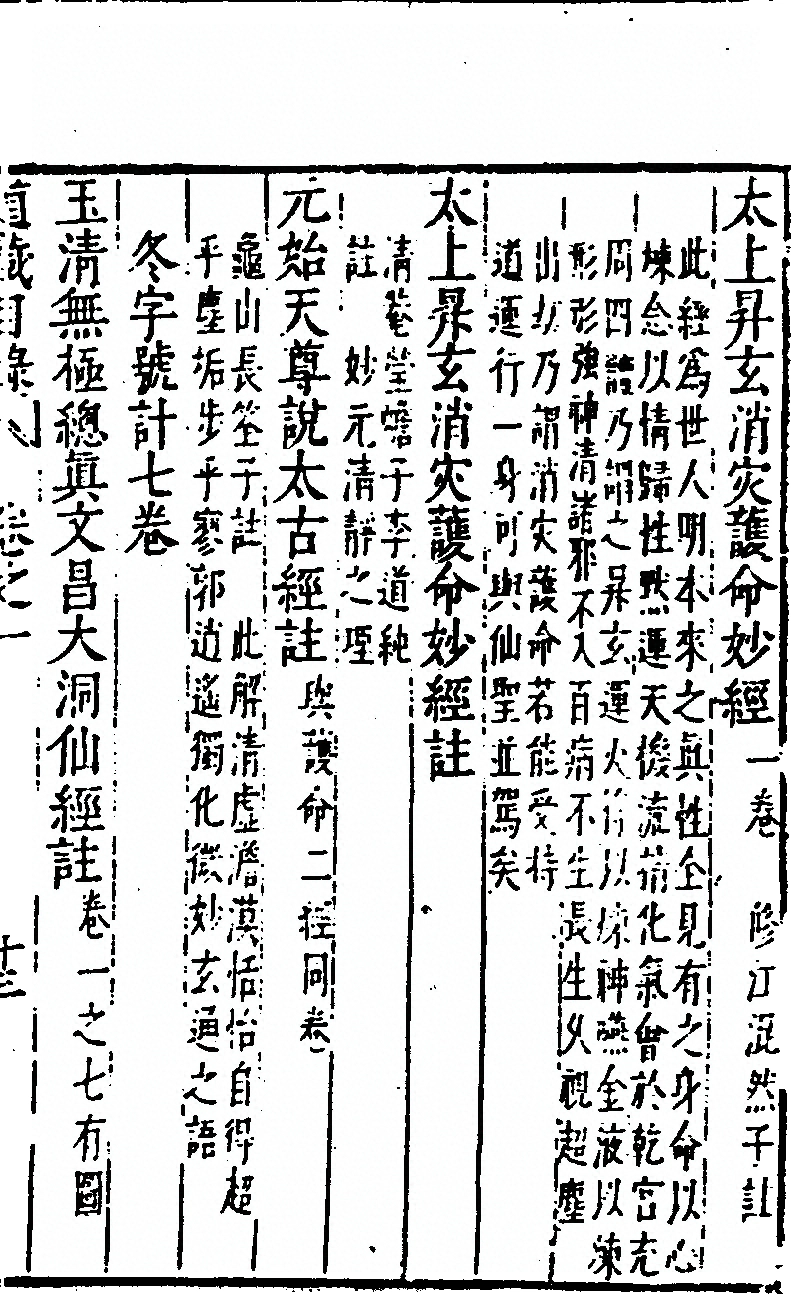 太上昇玄消灾護命妙經一卷 修江混然子註
此經爲世人明本來之眞性全見有之身命以心
煉念以情歸性默運天機流精化氣會於乾宮充
周四體乃謂之昇玄運火符以煉神嚥金液以煉
形形強神清諸邪不入百病不生長生久視超塵
出劫乃謂消灾護命若能受持
道運行一身可與仙聖並駕矣
太上昇玄消灾護命妙經註
清菴瑩蟾子李道純
註 妙元清靜之理
元始天尊說太古經註與護命二經同卷
龜山長筌子註 此解清虛澹漠恬怡自得超
乎塵垢步乎寥郭逍遙獨化微妙玄通之語
冬字號計七卷
玉清無極總眞文昌大洞仙經註卷一之七有圖
道藏目錄 卷之一 十三